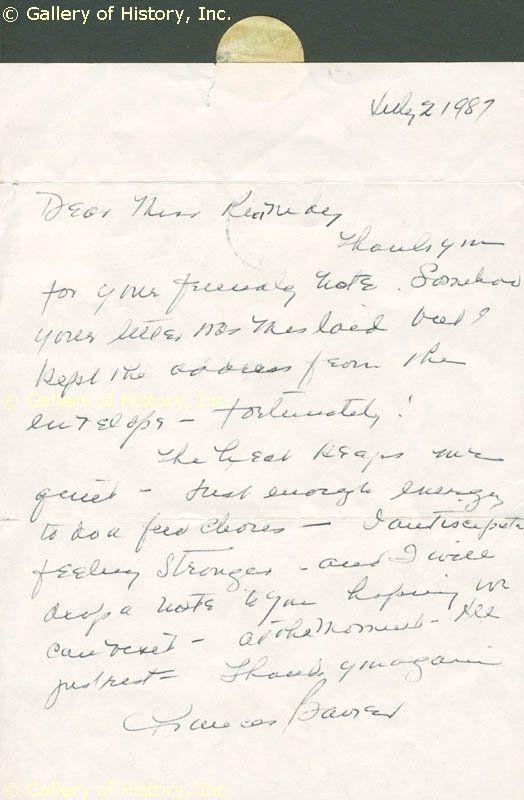 © Gallery of History, Inc.
July 2 1987
Dear Miss Kennedy
Thank you
for your friendly note. Somehow
your letter was mislaid but I
kept the address from the
© Gallery of History, Inc.
envelope - fortunately!
The heat keeps me
quiet - Just enough energy
to do a few chores - I antiscipate
feeling stronger - and I will
drop a note to you hoping we
can visit - at the moment - I'll
just rest - Thank you again
Frances Bavier
© Gallery of History, Inc.